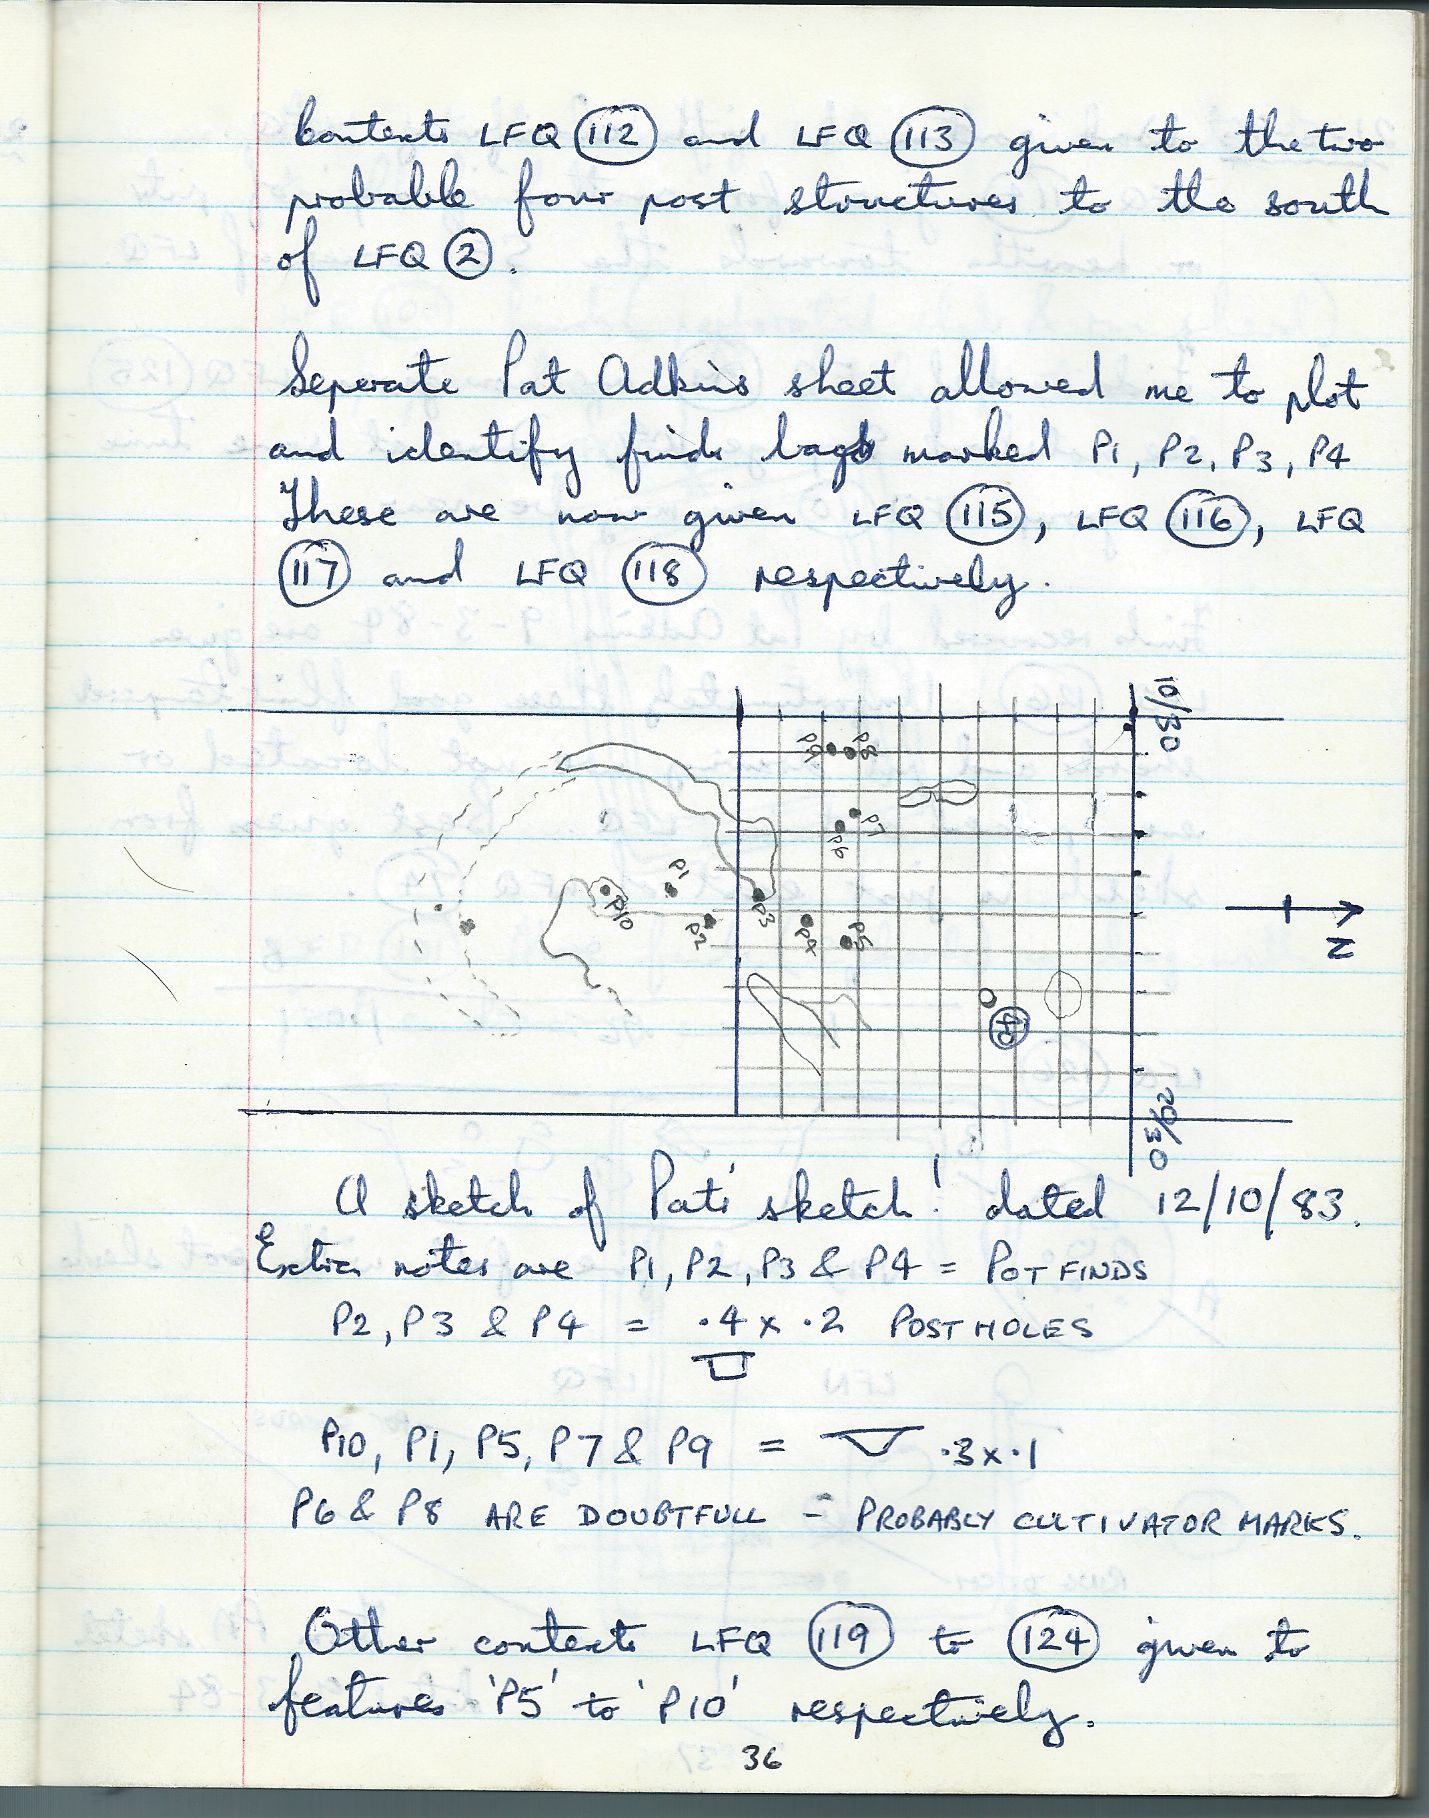 Contexts LFQ 112 and LFQ 113 given to the two
probable four post structures to the south
of LFQ 2.
Seperate Pat Adkins sheet allowed me to plot
and identify finds bags marked P1, P2, P3, P4
These are now given LFQ 115, LFQ 116, LFQ
117 and LFQ 118 respectively.
10/30
P9 P8
P7
P6
P1
P10
P2
P3
P4
P5
N
40
29/30
A sketch of Pats' sketch! dated 12/10/83.
Extra notes are P1, P2, P3 & P4 = POT FINDS
P2, P3 & P4 = .4 x .2 POST HOLES
P10, P1, P5, P7 & P9 = .3 x .1
P6 & P8 ARE DOUBTFULL - PROBABLY CULTIVATOR MARKS.
Other contexts LFQ 119 to 124 given to
features 'P5' to 'P10' respectively.
36